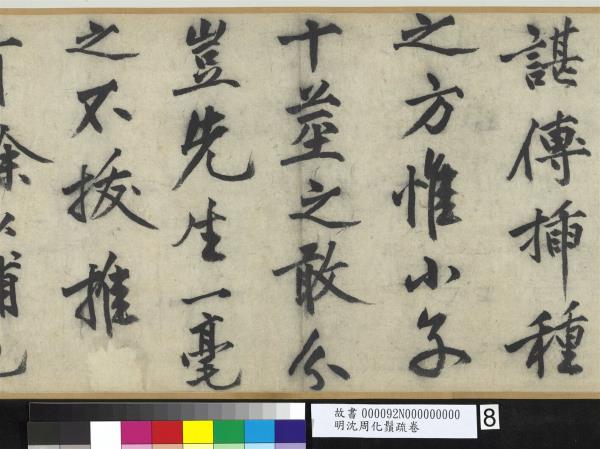 諶傳插種
之方惟小子
十莖之敢分
豈先生一毫
之不拔推
故書 000092N000000000
明沈周化鬚疏卷
8